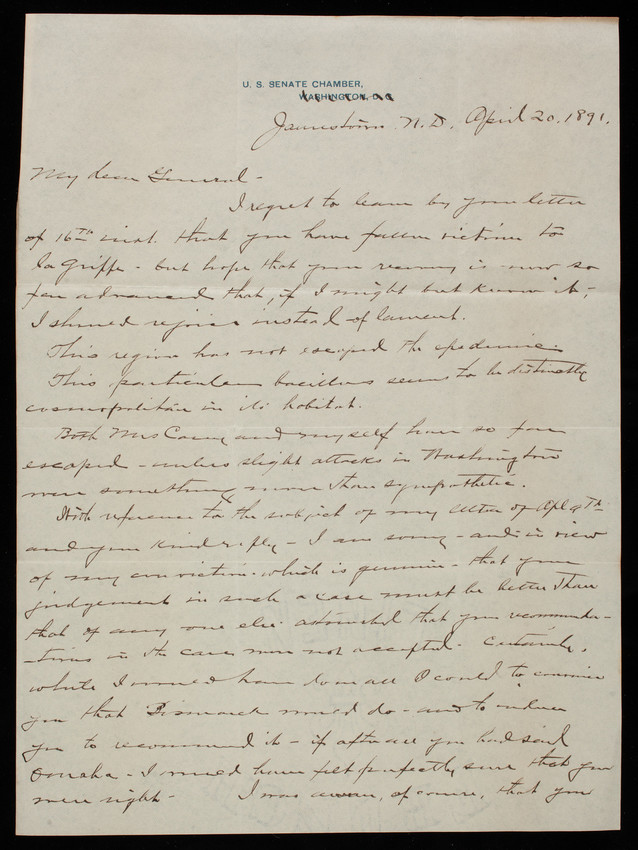 U. S. SENATE CHAMBER,
WASHINGTON, D.C.
Jamestown N.D. April 20. 1891.
My dear General -
I regret to learn by your letter
of 16th inst. that you have fallen victim to
la Grippe - but hope that your recovery is now so
far advanced that, if I might but know it,
I should rejoice instead of lament.
This region has not escaped the epedemic.
This particular bacillus seems to be distinctly
cosmopolitan in its habitat.
Both Mrs Casey and myself have so far
escaped - unless slight attacks in Washington
were something more than sympathetic.
With reference to the subject of my letter of Apl 9th
and your kind reply - I am sorry - and in view
of my conviction - which is genuine - that your
judgement in such a case must be better than
that of any one else astonished that your recommenda-
-tions in the case were not accepted. Certainly,
while I would have done all I could to convince
you that Bismarck would do - and to induce
you to recommend it - if after all you had said
Omaha - I would have felt perfectly sure that you
were right - I was aware, of course, that you